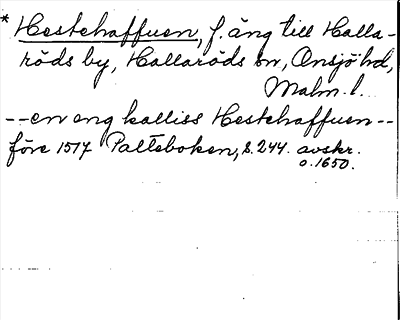 * Hestehaffuen, f. äng till Halla-
röds by, Hallaröds sn, Onsjö hd,
Malm. l.
--en eng kalliss Hestehaffuen--
före 1517 Palteboken, s. 244. avskr.
o. 1650.